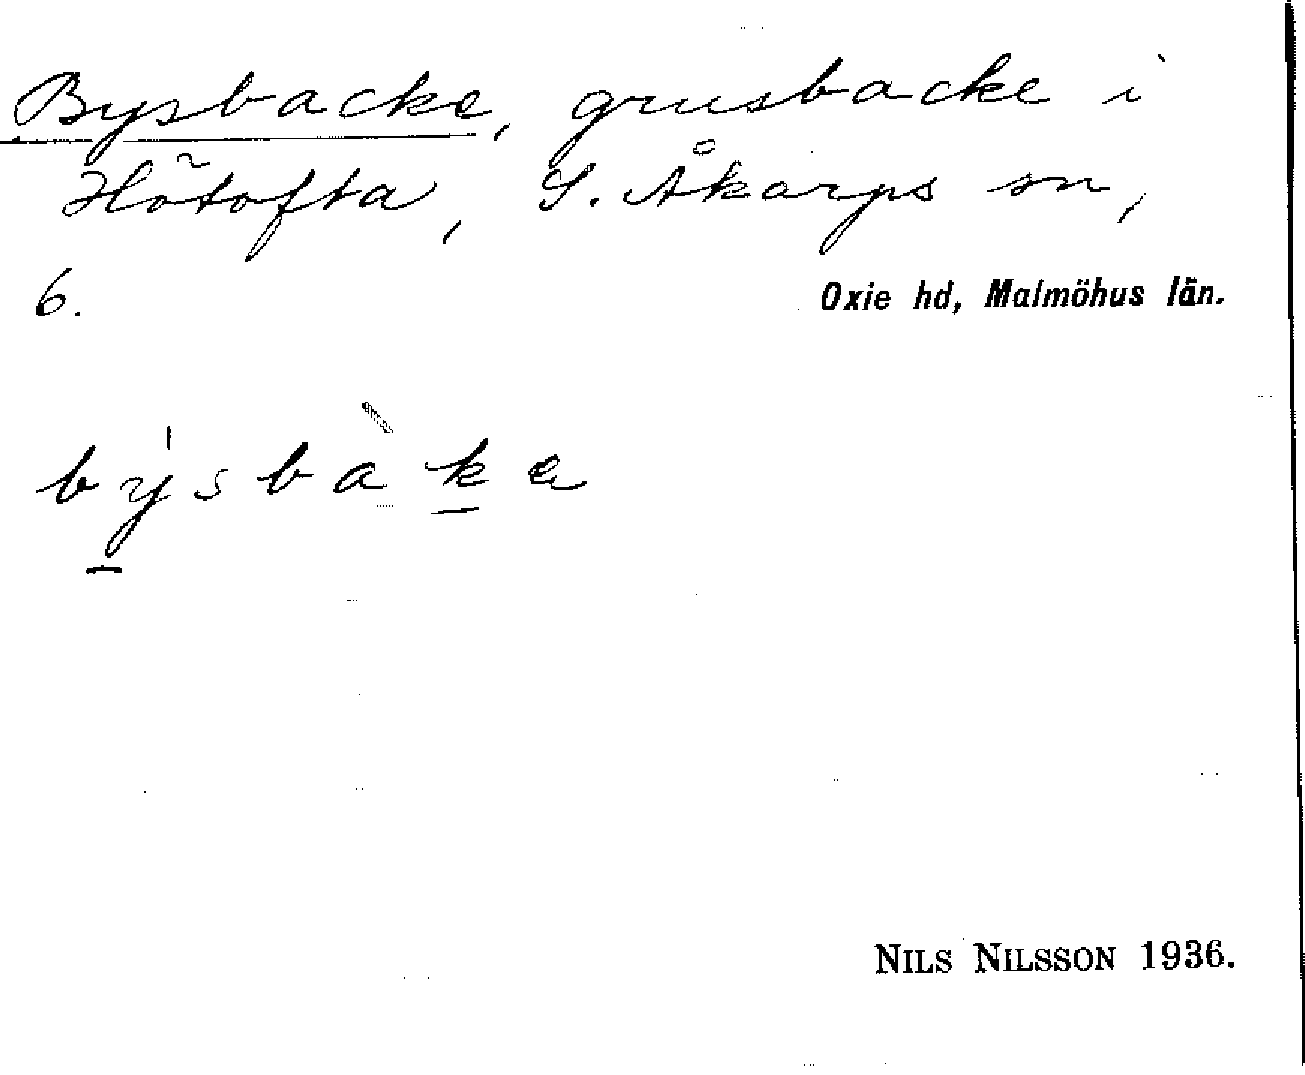 Bysbacke, grusbacke i
Hötofta, S. Åkarps sn,
6.
Oxie hd, Malmöhus län.
bý̱sbàḵe
NILS NILSSON 1936.